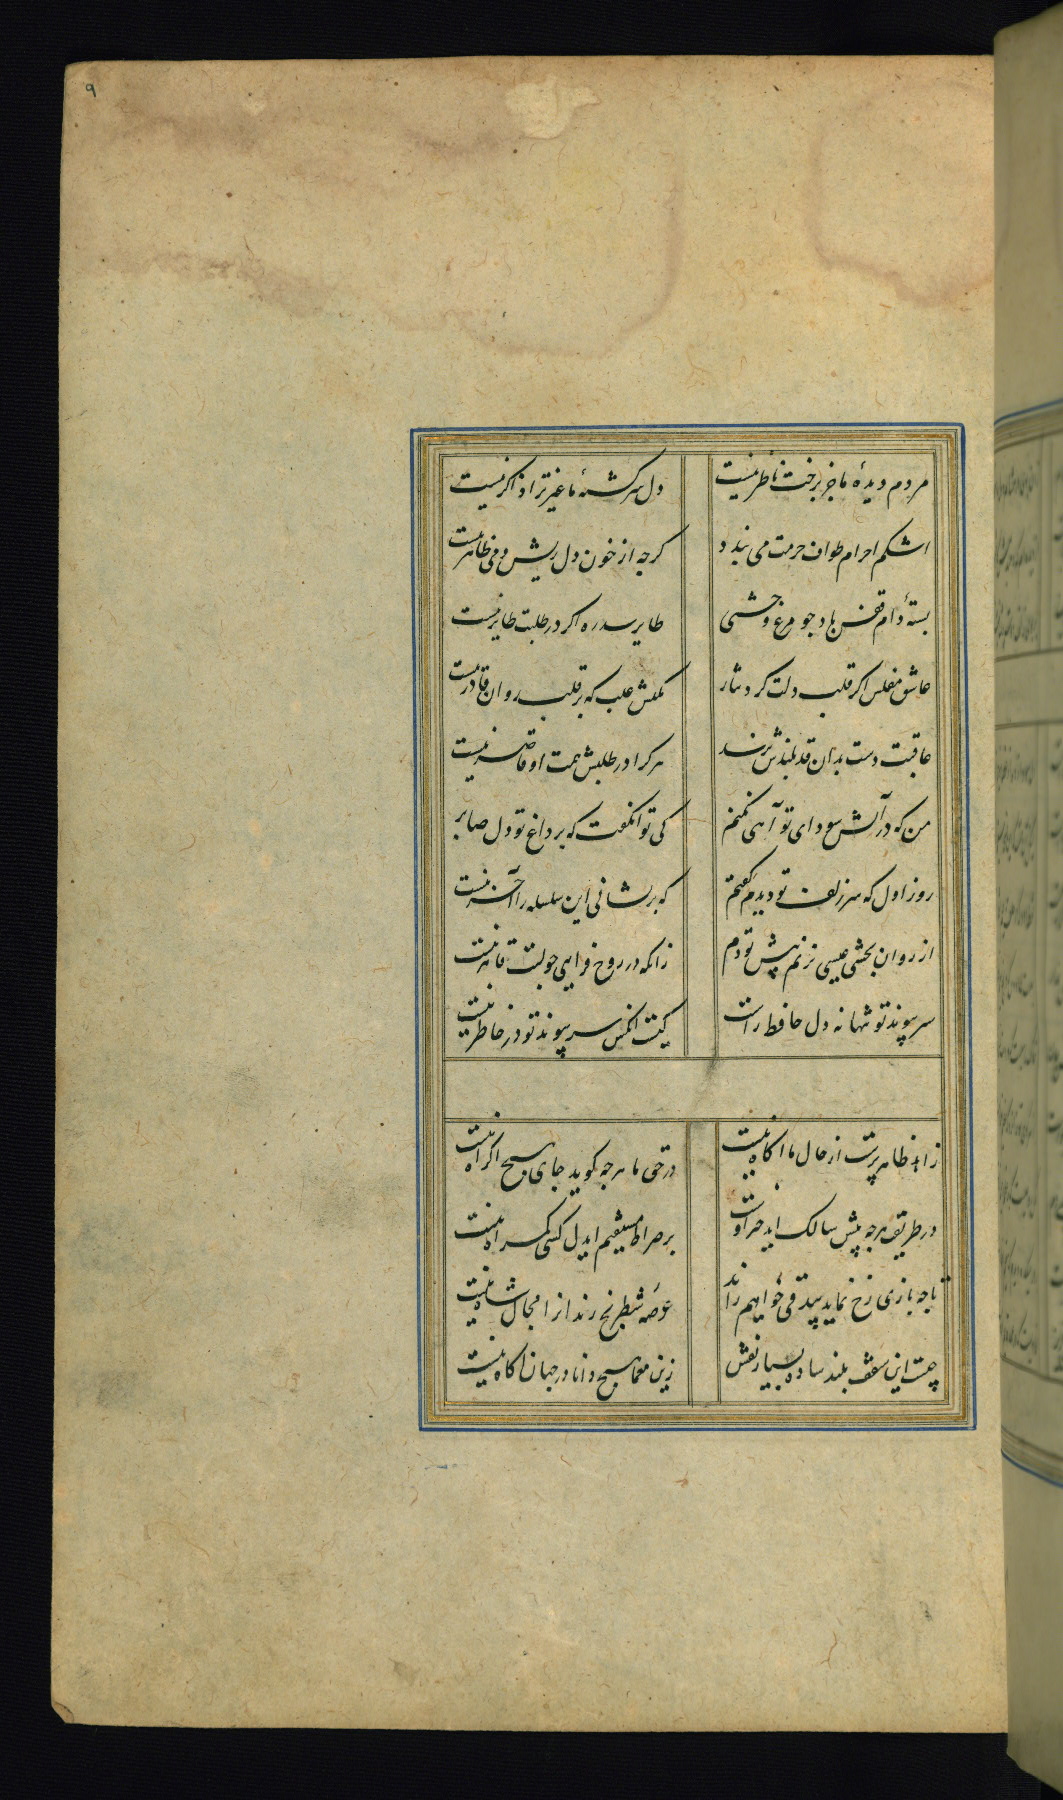 ۹
مردم دیدهٔ ما جز برخت ناظر نیست دل سرکشتهٔ ما غیر ترا ذاکر نیست
اشکم احرام طواف حرمت می بندد کرچه از خون دل ریش دمی طاهر نیست
بستهٔ دام قفس باد چو مرغ وحشی طایر سدره اکر در طلبت طایر نیست
عاشق مفلس اکر قلب دلت کرد نثار مکنش عیب که بر قلب روان قادر نیست
عاقبت دست بدان قد بلندش برسد هرکرا در طلبش همت او قاصر نیست
من که در آتش سودای تو آهی نکنم کی توان کفت که بر داغ تو دل صابر
روز اول که سر زلف تو دیدم کفتم که پریشانی این سلسله را آخر نیست
از روان بخشی عیسی نزنم پیش تو دم زانکه در روح فزایی چو لبت قاهر نیست
سر پیوند تو تنها نه دل حافظ راست کیست انکش سر پیوند تو در خاطر نیست
زاهد ظاهر پرست از حال ما اکاه نیست در حق ما هرچه کوید جای هیچ اکراه نیست
در طریق هرچه پیش سالک اید خیر اوست بر صراط مستقیم ایدل کسی کمراه نیست
تا چه بازی رخ نماید بیدقی خواهیم راند عرصه شطرنج رندانرا مجال شاه نیست
چیست این سقف بلند ساده بسیار نقش زین معما هیچ دانا در جهان اکاه نیست